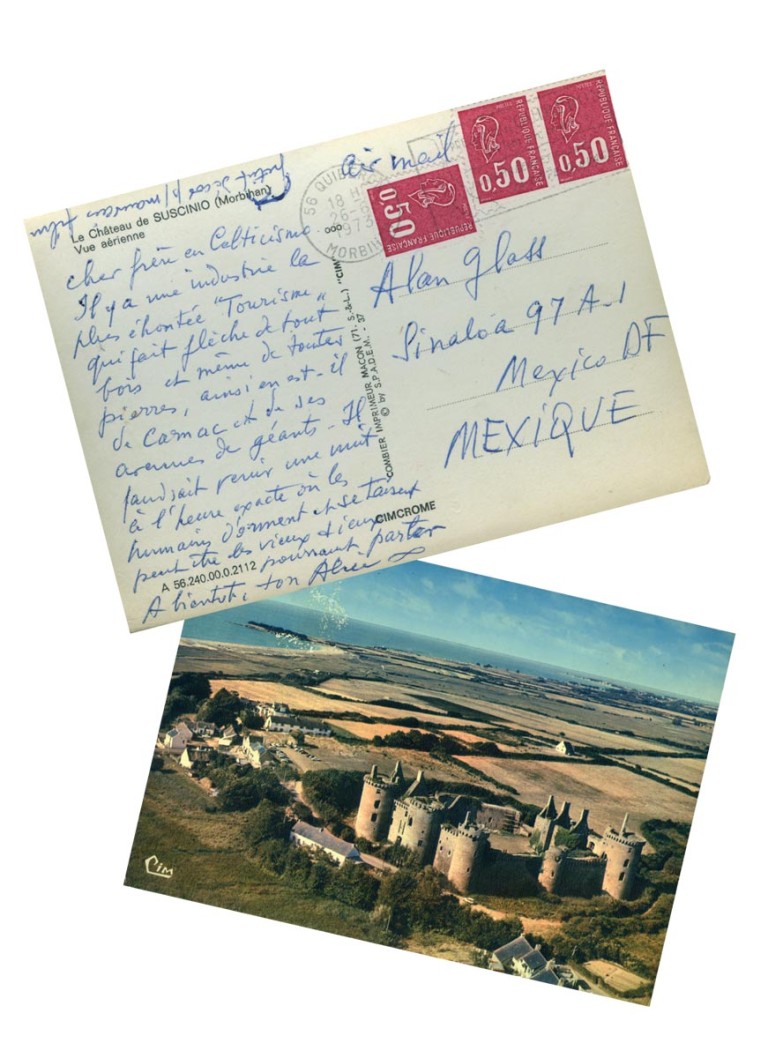 Petit décor p/ mauvais film
Le Château de SUSCINIO (Morbihan)
Vue aérienne
cher frère en Celticisme
Il y a une industrie la
plus éhontée "Tourisme"
qui fait flèche de tout
bois et même de toutes
pierres, ainsi en est-il
de Carnac et de ses
avenues de géants - Il
faudrait venir une nuit
à l'heure exacte où les
humains dorment et se taisent
peut être les vieux dieux
pourraient parler
A bientôt, ton
A 56.240.00.0.2112
CIMCROME
COMBIER IMPRIMEUR MACON (71. S.-&-L.) "CIM"
© by S.P.A.D.E.M. - 37
air mail
56 QUIB
18 H
26-
1973
MORBIH
0,50
REPUBLIQUE FRANÇAISE
0,50
REPUBLIQUE FRANÇAISE
0,50
REPUBLIQUE FRANÇAISE
Alan Glass
Sinaloa 97 A-1
Mexico DF
MEXIQUE
Cim